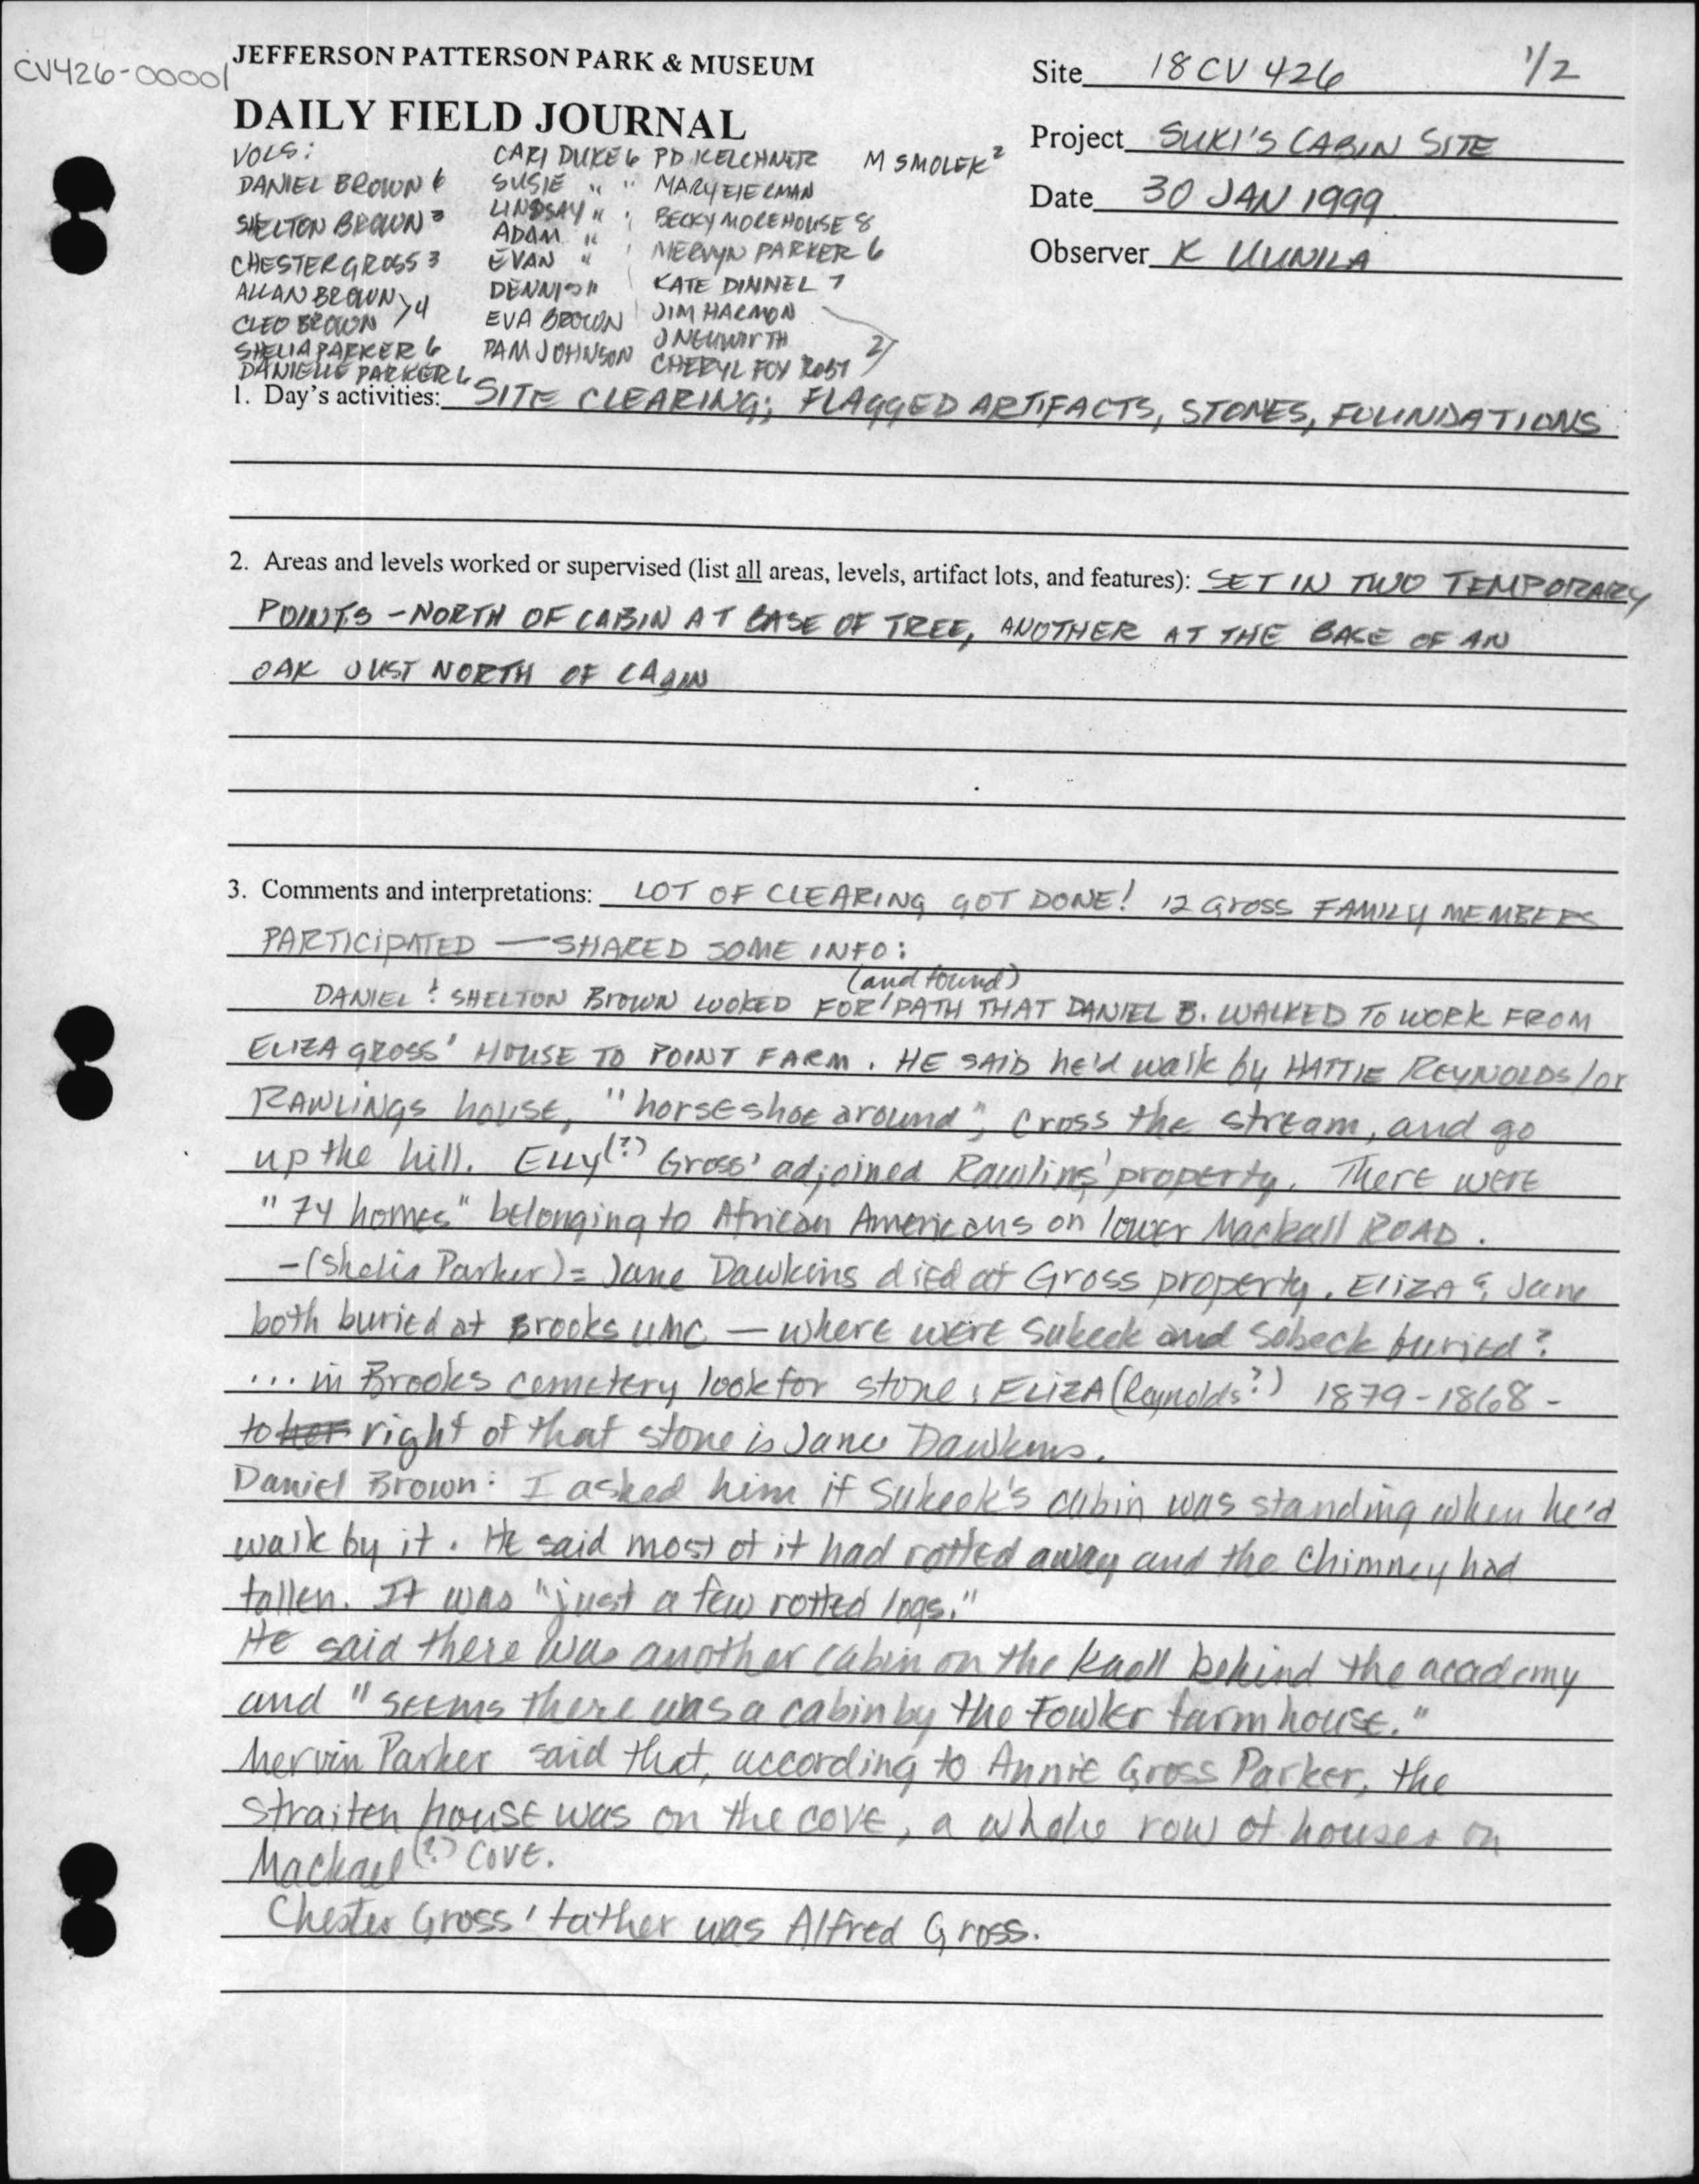 CV426-00001
JEFFERSON PATTERSON PARK & MUSEUM
DAILY FIELD JOURNAL
Site 18 CV 426 1/2
Project SUKI'S CABIN SITE
Date 30 JAN 1999
Observer K UUNILA
VOLS:
DANIEL BROWN 6
SHELTON BROWN 3
CHESTER GROSS 3
ALLAN BROWN
CLEO BROWN >4
SHELIA PARKER 6
DANIELLE PARKER 6
CARI DUKE 6
SUSIE " "
LINDSAY " "
ADAM "
EVAN "
DENNIS "
EVA BROWN
PAM JOHNSON
PD KELCHNER
MARY EIERMAN
BECKY MOREHOUSE 8
MERVYN PARKER 6
KATE DINNEL 7
JIM HARMON
J NEUWIRTH
CHERYL FOX 2
M SMOLEK 2
1. Day's activities: SITE CLEARING; FLAGGED ARTIFACTS, STONES, FOUNDATIONS
2. Areas and levels worked or supervised (list all areas, levels, artifact lots, and features): SET IN TWO TEMPORARY
POINTS - NORTH OF CABIN AT BASE OF TREE, ANOTHER AT THE BASE OF AN
OAK JUST NORTH OF CABIN
3. Comments and interpretations: LOT OF CLEARING GOT DONE! 12 GROSS FAMILY MEMBERS
PARTICIPATED — SHARED SOME INFO:
(and found)
DANIEL & SHELTON BROWN LOOKED FOR / PATH THAT DANIEL B. WALKED TO WORK FROM
ELIZA GROSS' HOUSE TO POINT FARM. HE SAID he'd walk by HATTIE REYNOLDS/or
RAWLINGS house, "horseshoe around", cross the stream, and go
up the hill. Elly(?) Gross' adjoined Rawlings' property. There were
"74 homes" belonging to African Americans on lower Mackall ROAD.
- (Shelia Parker) = Jane Dawkins died at Gross property. Eliza & Jane
both buried at Brooks UMC — where were Sukeek and Sobeck buried?
... in Brooks cemetery look for stone: ELIZA (Reynolds?) 1879-1868 -
to her right of that stone is Jane Dawkins.
Daniel Brown: I asked him if Sukeek's cabin was standing when he'd
walk by it. He said most of it had rotted away and the chimney had
fallen. It was "just a few rotted logs."
He said there was another cabin on the knoll behind the academy
and "seems there was a cabin by the Fowler farmhouse."
Mervin Parker said that, according to Annie Gross Parker, the
straiten house was on the cove, a whole row of houses on
Mackael(?) Cove.
Chester Gross' father was Alfred Gross.